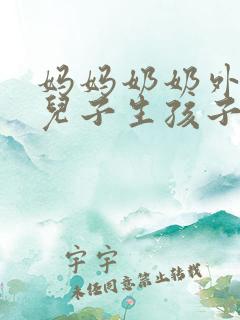 妈妈奶奶外
兒子生孩子
宇宇
未经同意禁止转载